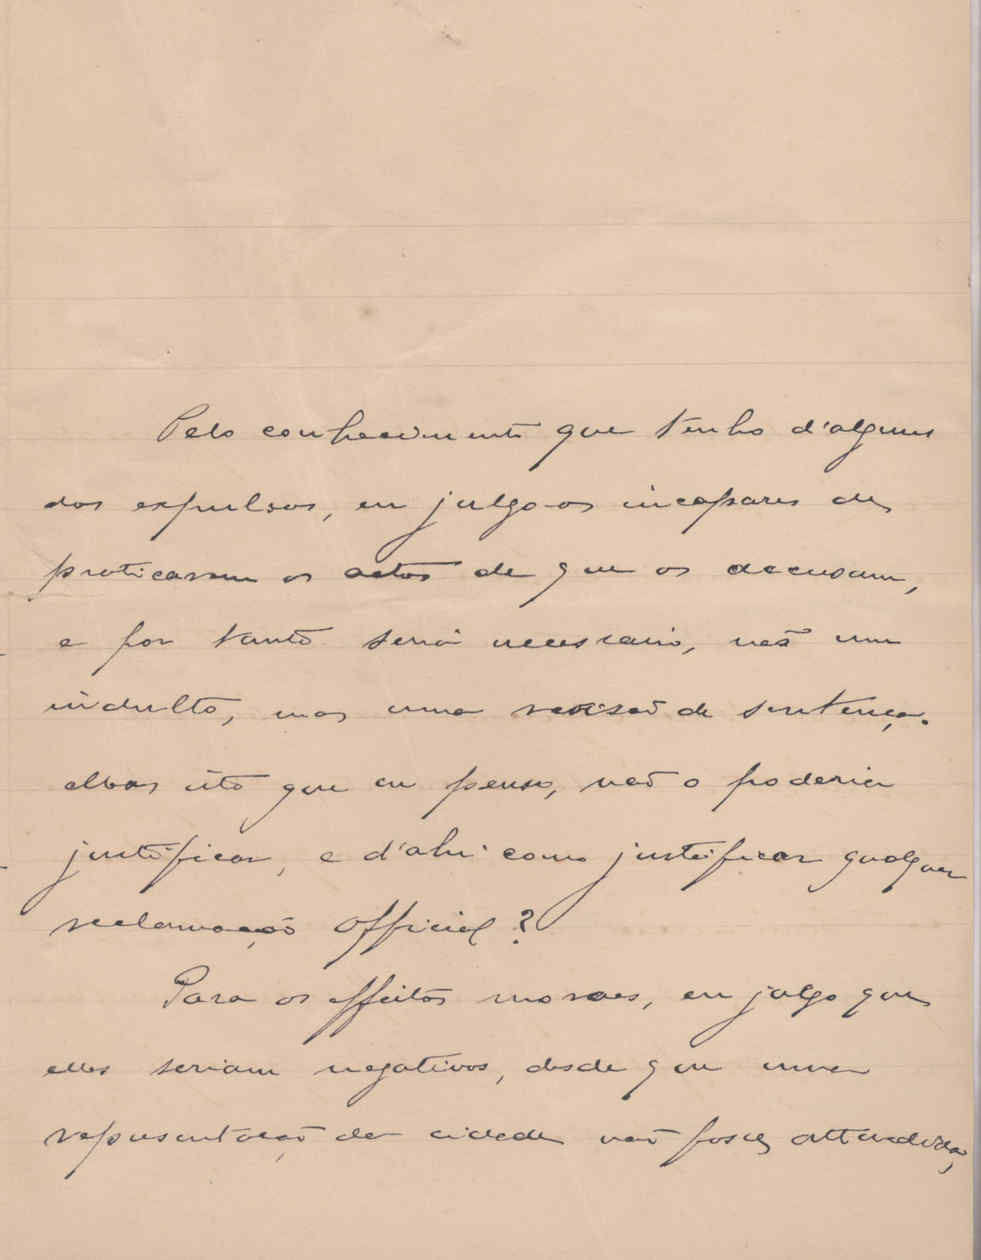 Pelo conhecimento que tenho d'alguns
dos expulsos, eu julgo-os incapazes de
praticarem os actos de que os accusam,
e por tanto seria necessario, não um
indulto, mas uma revisão de sentença.
Mas isto que eu penso, não o poderia
justificar, e d'ahi como justificar qualquer
reclamação official?
Para os effeitos moraes, eu julgo que
elles seriam negativos, desde que uma
representação da cidade não fosse attendida,